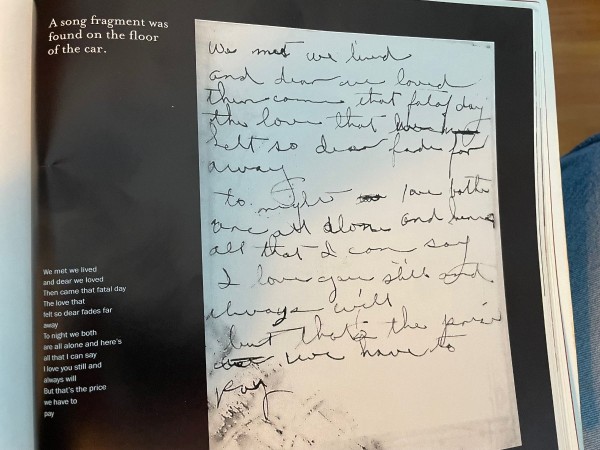 A song fragment was
found on the floor
of the car.
We met we lived
and dear we loved
then came that fatal day
the love that
felt so dear fades far
away
to night we both
are all alone and here's
all that I can say
I love you still and
always will
but that's the price
we have to
pay
We met we lived
and dear we loved
Then came that fatal day
The love that
felt so dear fades far
away
To night we both
are all alone and here's
all that I can say
I love you still and
always will
But that's the price
we have to
pay